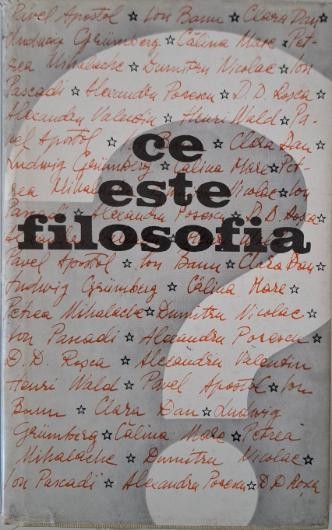 Pavel Apostol ☆ Ion Banu ☆ Clara Dan
Ludwig Grünberg ☆ Călina Mare ☆ Pet-
rea Mihalache ☆ Dumitru Nicolac ☆ Ion
Pascadi ☆ Alexandru Posescu ☆ D.D. Roșca
Alexandru Valentin ☆ Henri Wald ☆ Pa-
vel Apostol ☆ Clara Dan
ce
Ludwig Grünberg ☆ Călina Mare ☆ Pet-
este
rea Nicolac ☆ Ion
filosofia
Pascadi ☆ Alexandru Posescu ☆ D.D. Roșca
Pavel Apostol ☆ Ion Banu ☆ Clara Dan
Ludwig Grünberg ☆ Călina Mare ☆
Petrea Mihalache ☆ Dumitru Nicolac ☆
Ion Pascadi ☆ Alexandru Posescu ☆
D.D. Roșca ☆ Alexandru Valentin
Henri Wald ☆ Pavel Apostol ☆ Ion
Banu ☆ Clara Dan ☆ Ludwig
Grünberg ☆ Călina Mare ☆ Petrea
Mihalache ☆ Dumitru Nicolac ☆
Ion Pascadi ☆ Alexandru Posescu ☆ D.D. Roșca